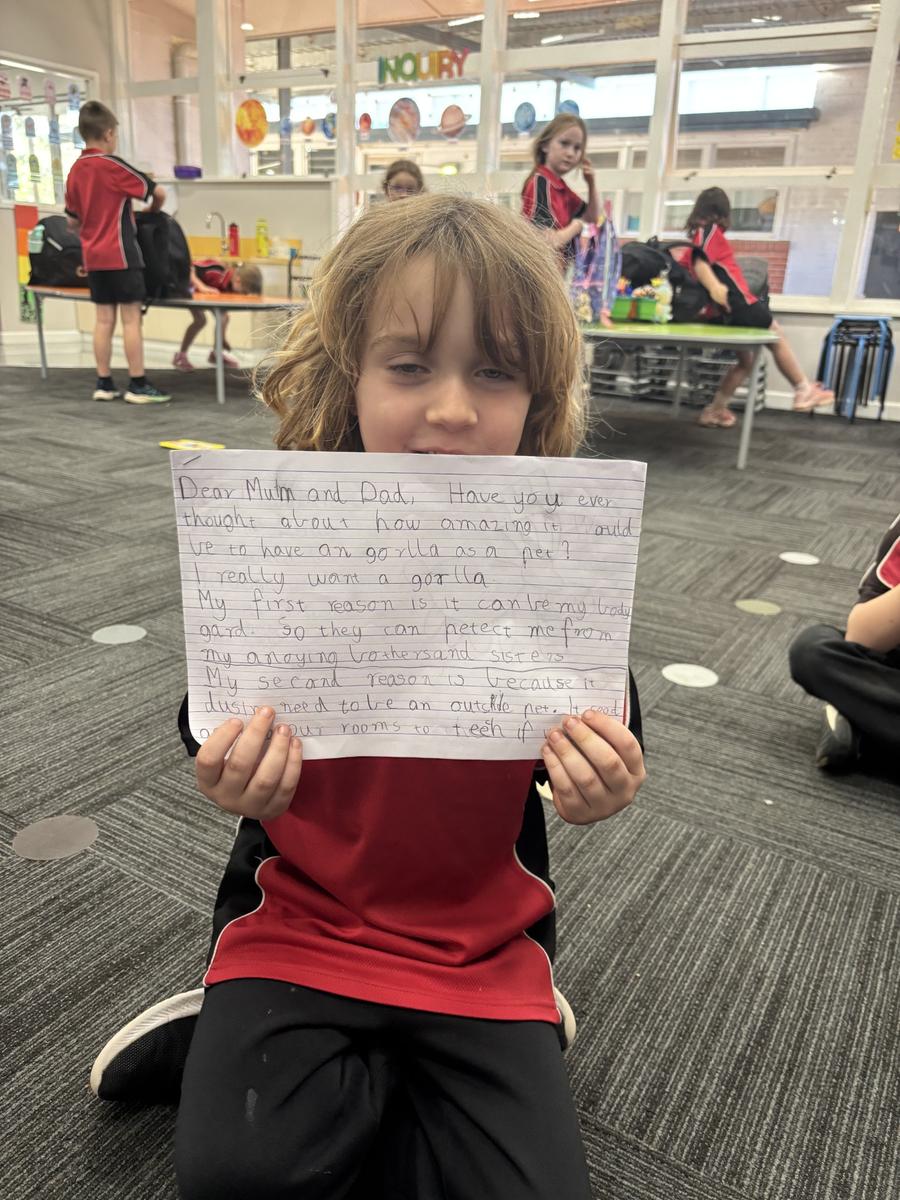 INQUIRY
Dear Mum and Dad, Have you ever
thought about how amazing it ould
be to have an gorlla as a pet?
I really want a gorlla
My first reason is it can be my body
gard. So they can petect me from
my anoying bothers and sisters
My second reason is because it
dusin need to be an outside pet. It
our rooms to teeh if